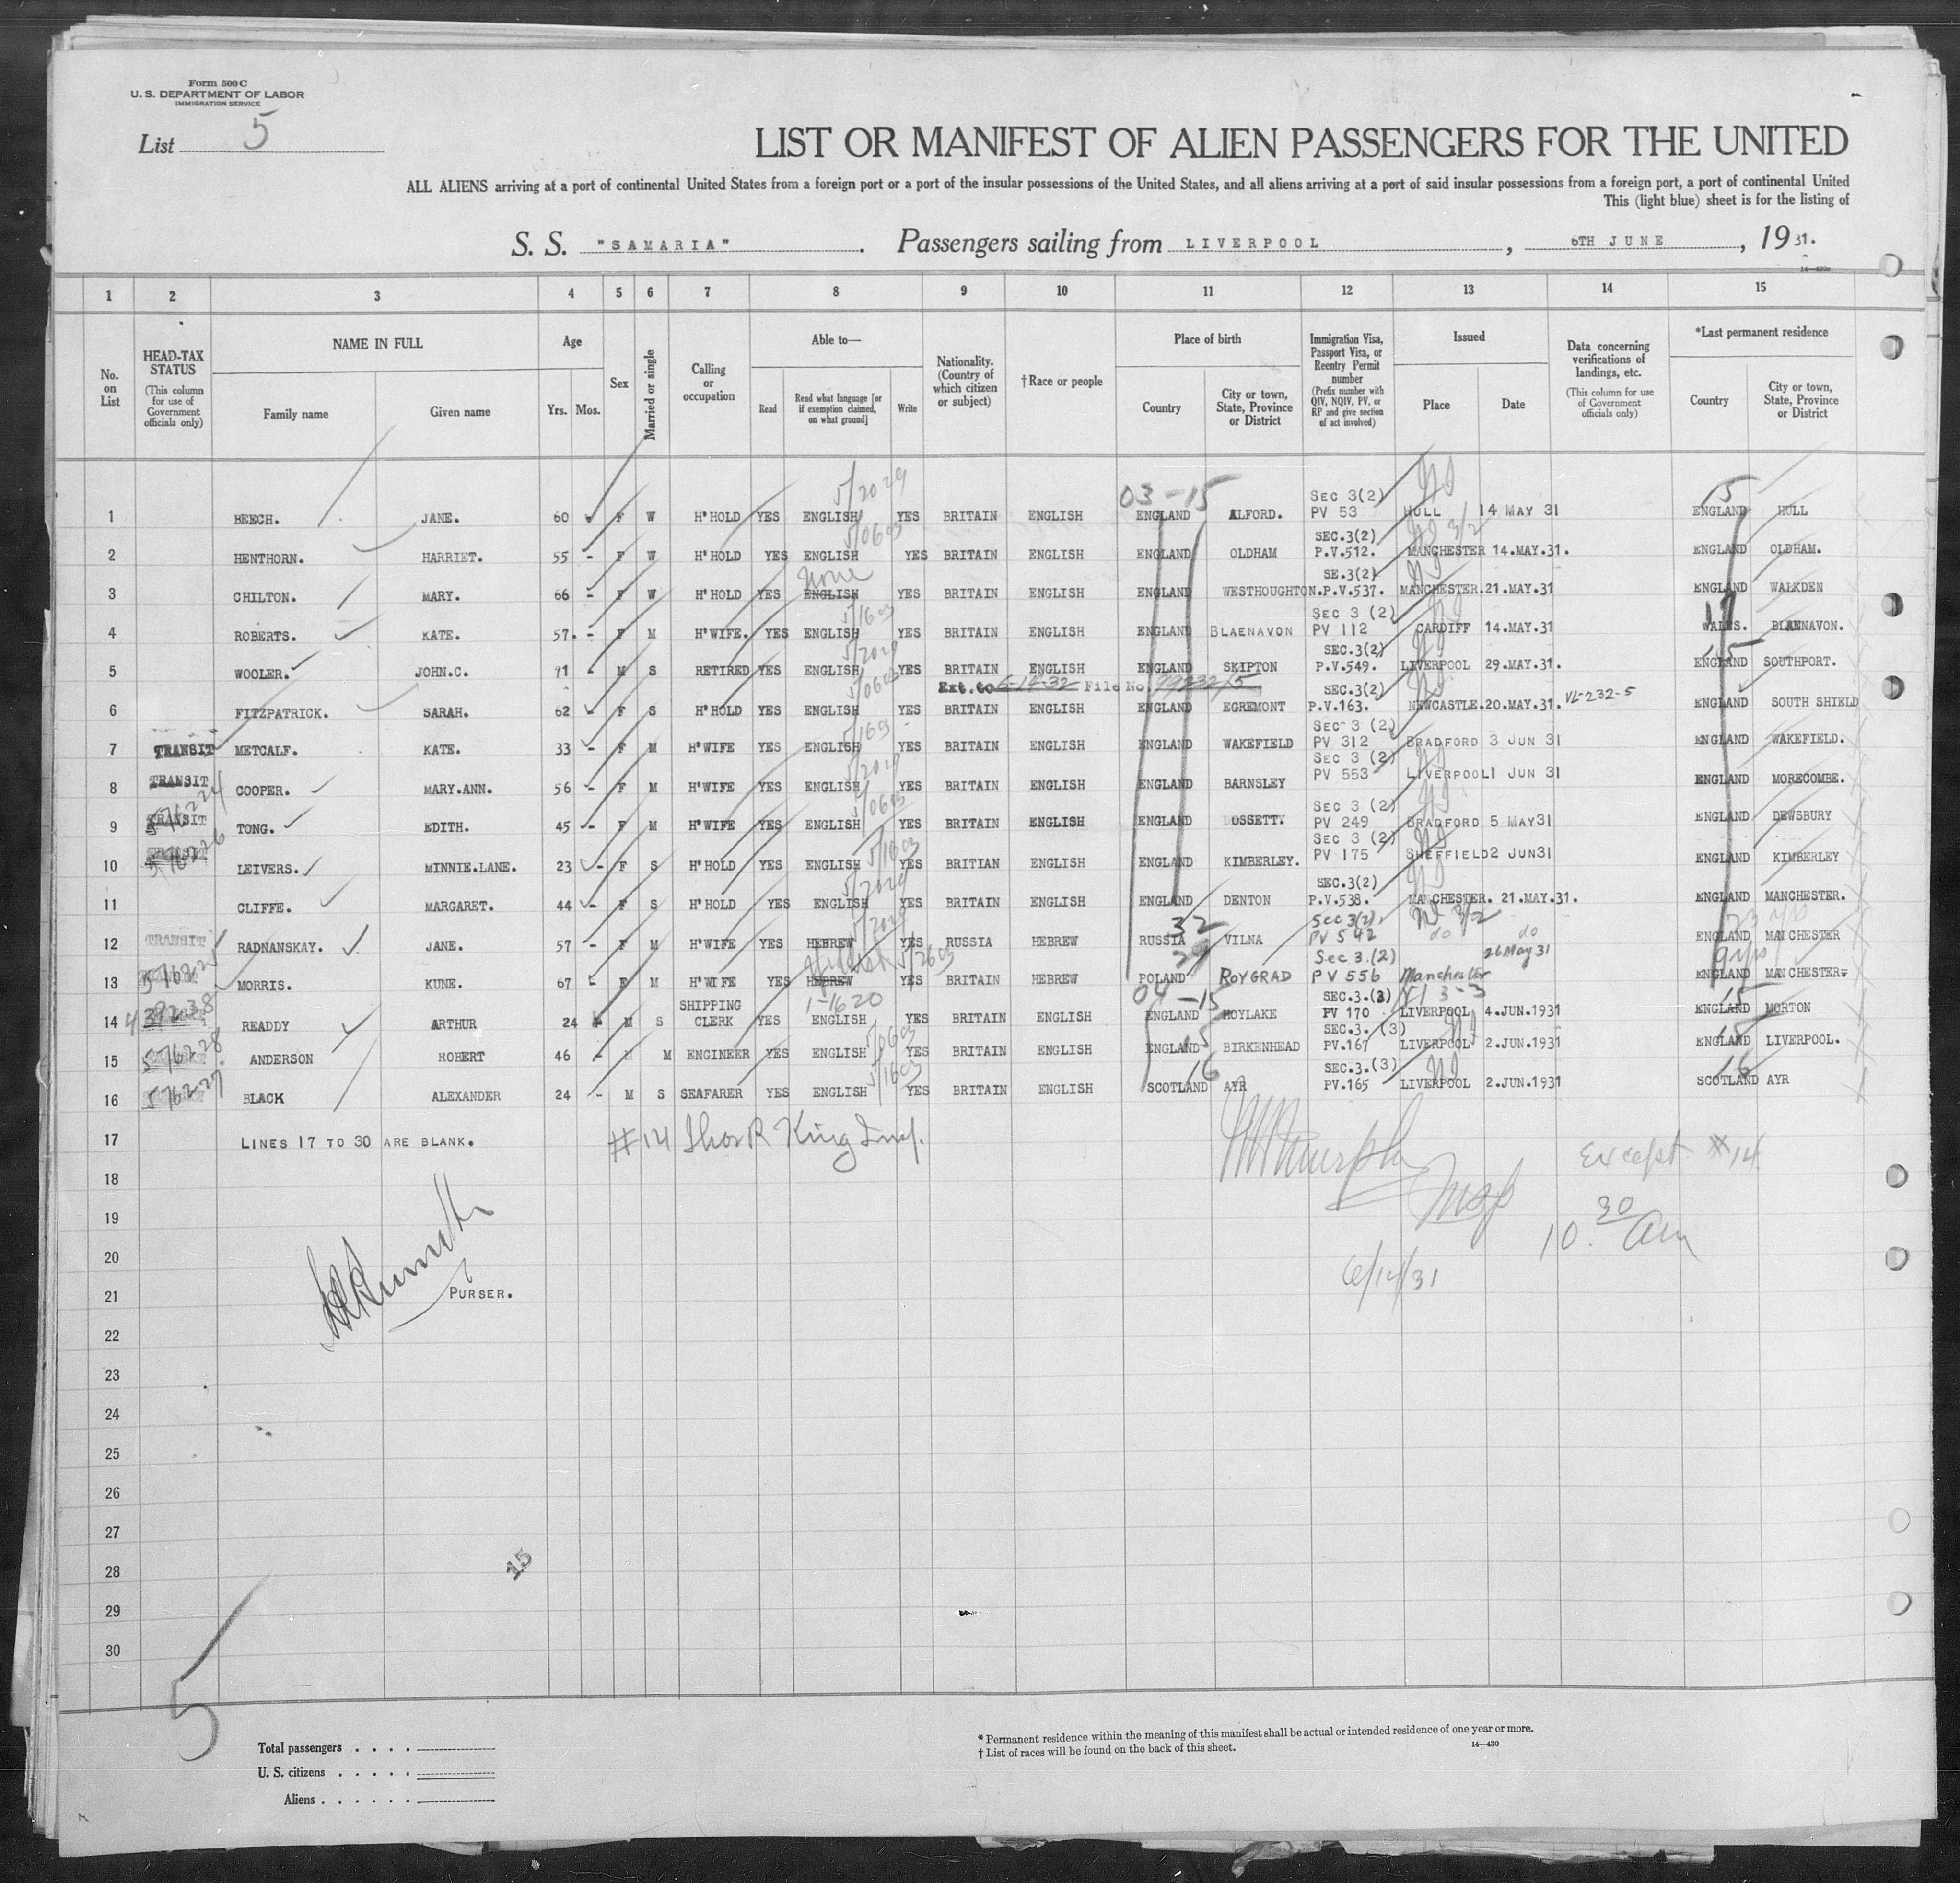 Form 500 C
U. S. DEPARTMENT OF LABOR
IMMIGRATION SERVICE
List 5
LIST OR MANIFEST OF ALIEN PASSENGERS FOR THE UNITED
ALL ALIENS arriving at a port of continental United States from a foreign port or a port of the insular possessions of the United States, and all aliens arriving at a port of said insular possessions from a foreign port, a port of continental United
This (light blue) sheet is for the listing of
S. S. "SAMARIA". Passengers sailing from LIVERPOOL, 6TH JUNE, 1931.
14—430c
1 2 3 4 5 6 7 8 9 10 11 12 13 14 15
No. on List
HEAD-TAX STATUS (This column for use of Government officials only)
NAME IN FULL Family name Given name
Age Yrs. Mos.
Sex
Married or single
Calling or occupation
Able to— Read Read what language [or if exemption claimed, on what ground] Write
Nationality. (Country of which citizen or subject)
†Race or people
Place of birth Country City or town, State, Province or District
Immigration Visa, Passport Visa, or Reentry Permit number (Prefix number with QIV, NQIV, PV, or RP and give section of act involved)
Issued Place Date
Data concerning verifications of landings, etc. (This column for use of Government officials only)
*Last permanent residence Country City or town, State, Province or District
5/2029 03-15 SEC 3(2) 15
1 BEECH. JANE. 60 - F W H'HOLD YES ENGLISH YES BRITAIN ENGLISH ENGLAND ALFORD. PV 53 HULL 14 MAY 31 ENGLAND HULL
SEC.3(2)
2 HENTHORN. HARRIET. 55 - F W H'HOLD YES ENGLISH YES BRITAIN ENGLISH ENGLAND OLDHAM P.V.512. MANCHESTER 14.MAY.31. ENGLAND OLDHAM.
None SE.3(2)
3 CHILTON. MARY. 66 - F W H'HOLD YES ENGLISH YES BRITAIN ENGLISH ENGLAND WESTHOUGHTON. P.V.537. MANCHESTER. 21.MAY.31 ENGLAND WALKDEN
SEC 3 (2) 17
4 ROBERTS. KATE. 57. - F M H'WIFE. YES ENGLISH YES BRITAIN ENGLISH ENGLAND BLAENAVON PV 112 CARDIFF 14.MAY.31 WALES. BLAENAVON.
SEC.3(2) 15
5 WOOLER. JOHN.C. 71 - M S RETIRED YES ENGLISH YES BRITAIN ENGLISH ENGLAND SKIPTON P.V.549. LIVERPOOL 29.MAY.31. ENGLAND SOUTHPORT.
Ext. to 6-14-32 File No. 99232/5 SEC.3(2)
6 FITZPATRICK. SARAH. 62 - F S H'HOLD YES ENGLISH YES BRITAIN ENGLISH ENGLAND EGREMONT P.V.163. NEWCASTLE. 20.MAY.31. VL-232-5 ENGLAND SOUTH SHIELD
SEC 3 (2)
7 TRANSIT METCALF. KATE. 33 - F M H'WIFE YES ENGLISH YES BRITAIN ENGLISH ENGLAND WAKEFIELD PV 312 BRADFORD 3 JUN 31 ENGLAND WAKEFIELD.
SEC 3 (2)
8 TRANSIT COOPER. MARY.ANN. 56 - F M H'WIFE YES ENGLISH YES BRITAIN ENGLISH ENGLAND BARNSLEY PV 553 LIVERPOOL 1 JUN 31 ENGLAND MORECOMBE.
576224 SEC 3 (2)
9 TRANSIT TONG. EDITH. 45 - F M H'WIFE YES ENGLISH YES BRITAIN ENGLISH ENGLAND DOSSETTY PV 249 BRADFORD 5 MAY 31 ENGLAND DEWSBURY
576226 SEC 3 (2)
10 TRANSIT LEIVERS. MINNIE.LANE. 23 - F S H'HOLD YES ENGLISH YES BRITIAN ENGLISH ENGLAND KIMBERLEY. PV 175 SHEFFIELD 2 JUN31 ENGLAND KIMBERLEY
SEC.3(2)
11 CLIFFE. MARGARET. 44 - F S H'HOLD YES ENGLISH YES BRITAIN ENGLISH ENGLAND DENTON P.V.538. MANCHESTER. 21.MAY.31. ENGLAND MANCHESTER.
32 Sec 3(2)
12 TRANSIT RADNANSKAY. JANE. 57 - F M H'WIFE YES HEBREW YES RUSSIA HEBREW RUSSIA VILNA PV 542 do do ENGLAND MANCHESTER
576225 Sec 3.(2) 26 May 31
13 MORRIS. KUNE. 67 - F M H'WIFE YES HEBREW YES BRITAIN HEBREW POLAND ROYGRAD PV 556 Manchester ENGLAND MANCHESTER
SHIPPING 1-1620 04-15 SEC.3.(3) 15
14 READDY ARTHUR 24 - M S CLERK YES ENGLISH YES BRITAIN ENGLISH ENGLAND HOYLAKE PV 170 LIVERPOOL 4.JUN.1931 ENGLAND MORTON
576228 15 SEC.3.(3) 15
15 ANDERSON ROBERT 46 - M M ENGINEER YES ENGLISH YES BRITAIN ENGLISH ENGLAND BIRKENHEAD PV.167 LIVERPOOL 2.JUN.1931 ENGLAND LIVERPOOL.
576227 16 SEC.3.(3) 16
16 BLACK ALEXANDER 24 - M S SEAFARER YES ENGLISH YES BRITAIN ENGLISH SCOTLAND AYR PV.165 LIVERPOOL 2.JUN.1931 SCOTLAND AYR
17 LINES 17 TO 30 ARE BLANK. #14 Thos R King Insp.
Except #14
18
Insp
19
10 30 am
20
6/14/31
21 PURSER.
22
23
24
25
26
27
28
15
29
30
5
Total passengers
U. S. citizens
Aliens
* Permanent residence within the meaning of this manifest shall be actual or intended residence of one year or more.
† List of races will be found on the back of this sheet.
14—430